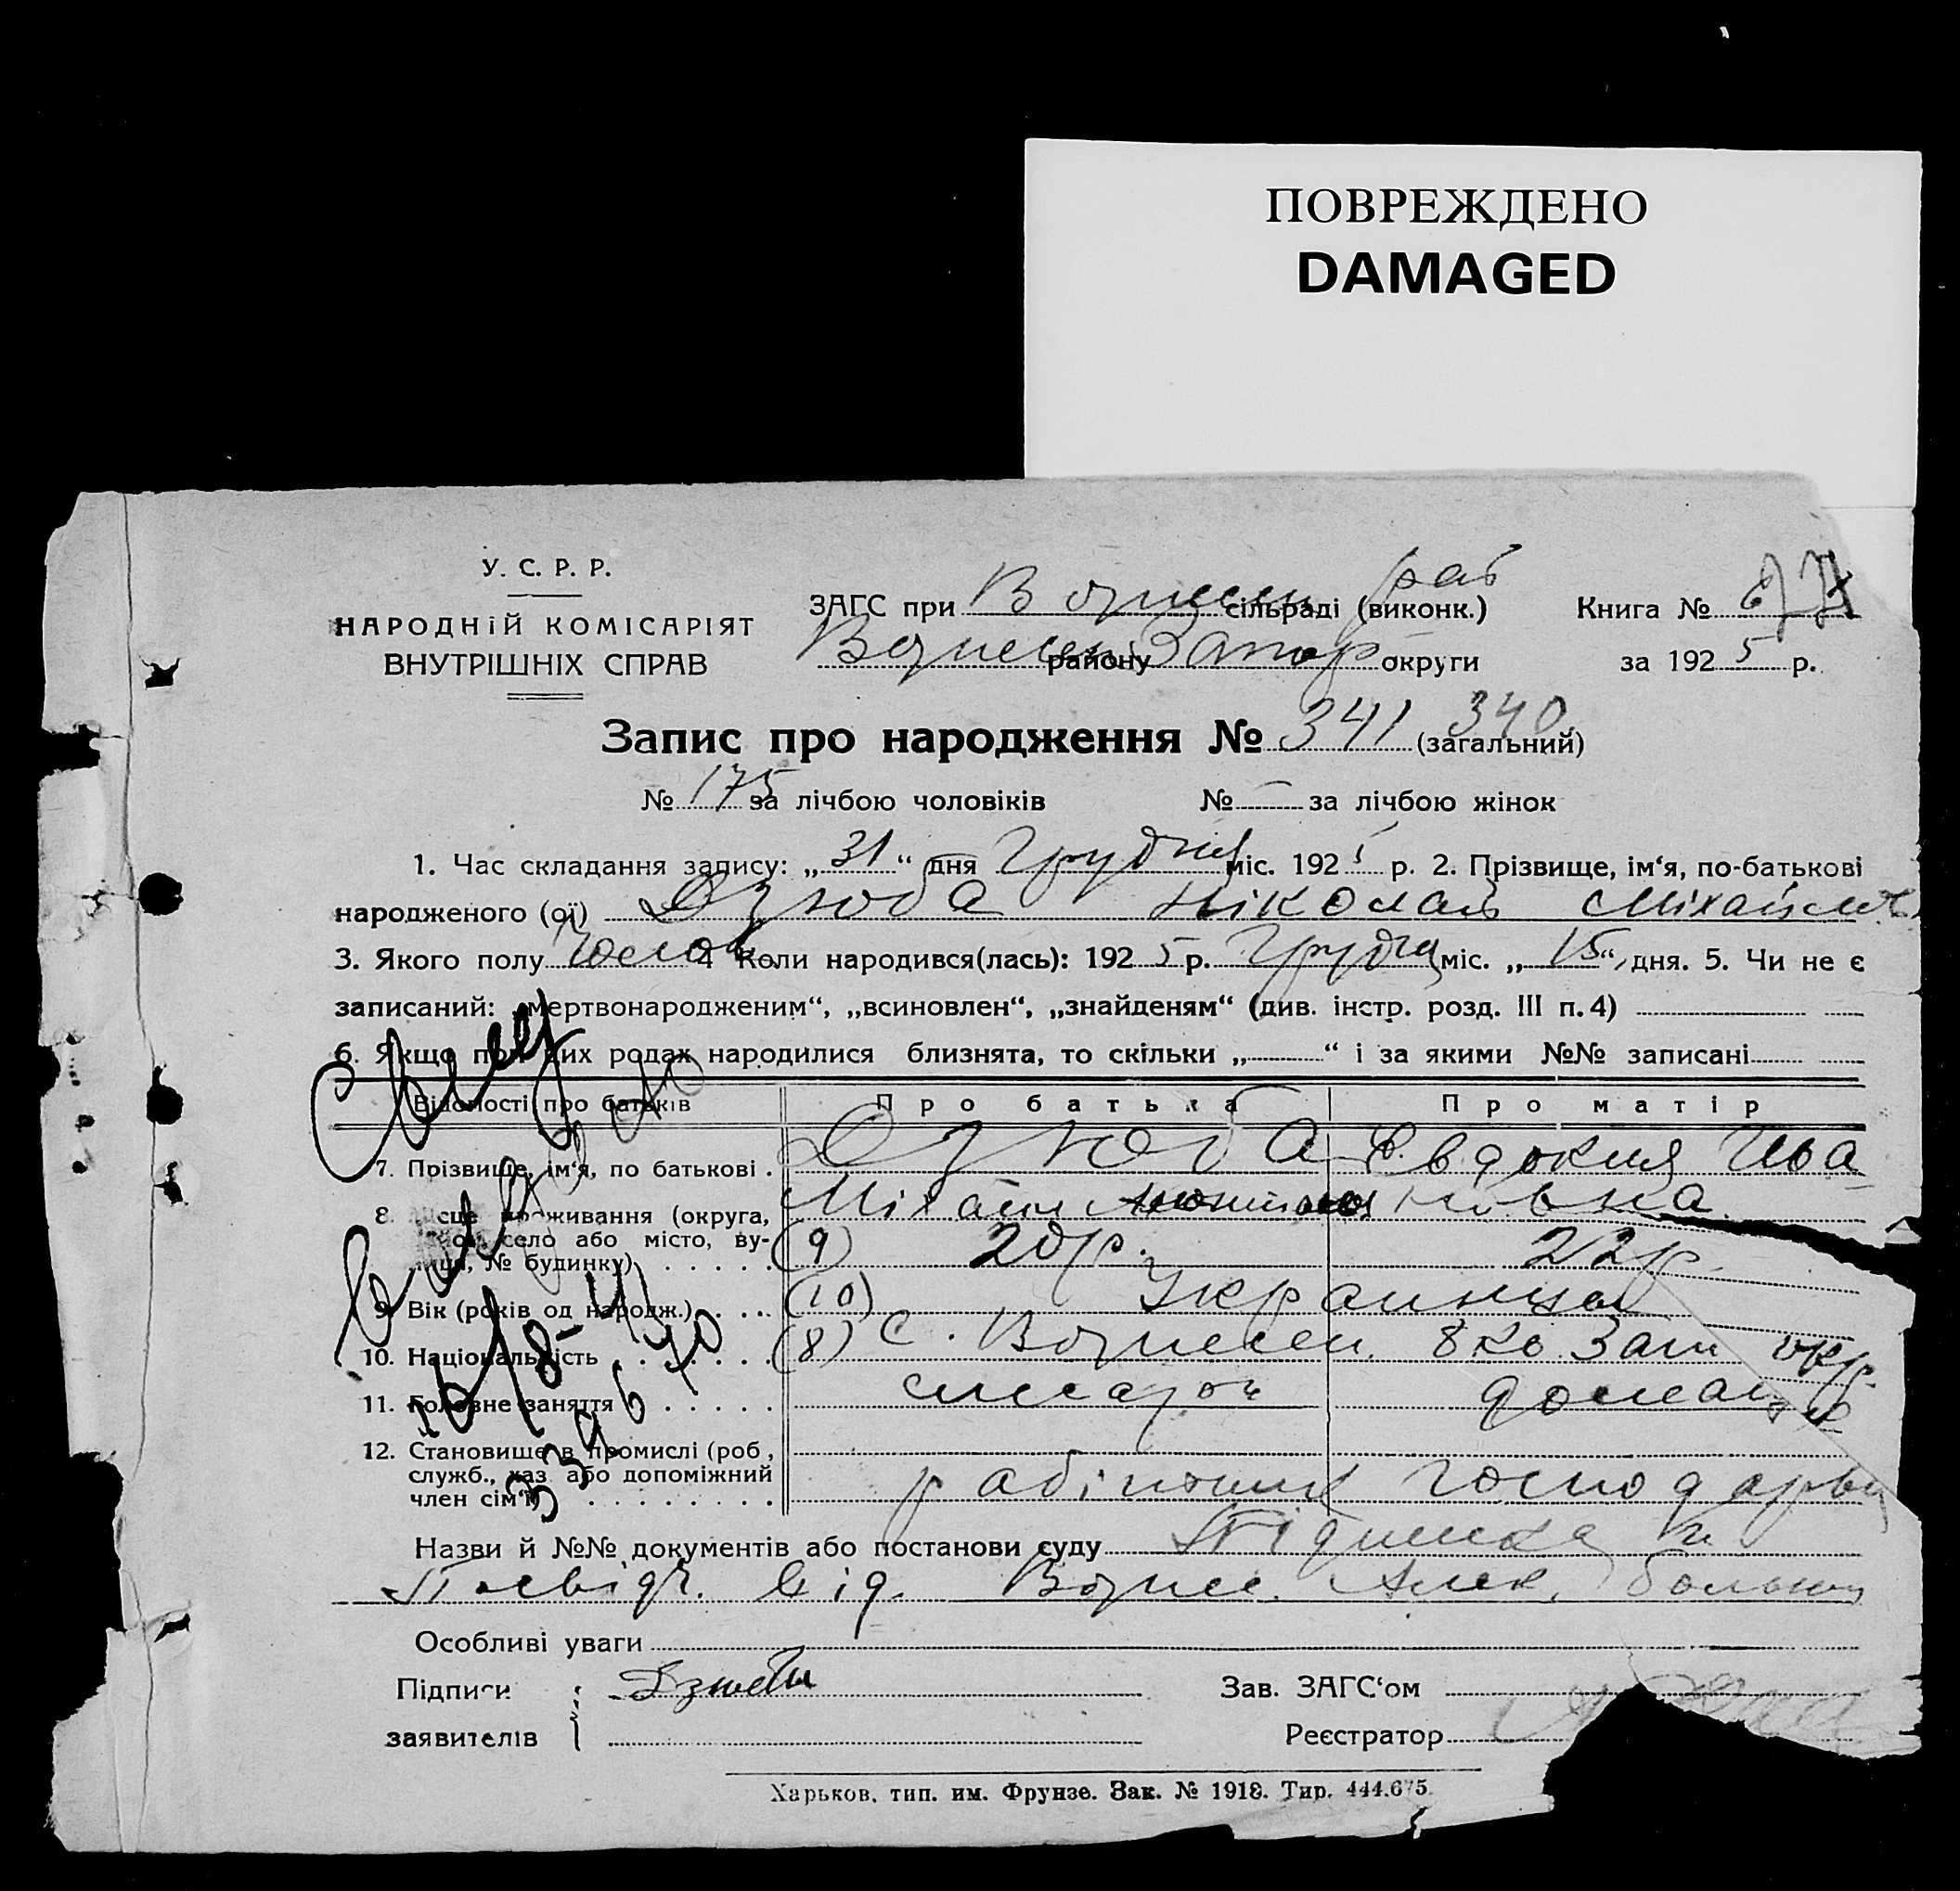 ПОВРЕЖДЕНО
DAMAGED
У. С. Р. Р.
НАРОДНІЙ КОМІСАРІЯТ
ВНУТРІШНІХ СПРАВ
ЗАГС при Вознесен сільраді (виконк.) рай
Вознесен району Запор округи
Книга № 6
за 1925 р.
Запис про народження № 341 (загальний) 340
№ 175 за лічбою чоловіків № — за лічбою жінок
1. Час складання запису: „31“ дня Грудня міс. 1925 р. 2. Прізвище, ім‘я, по-батькові
народженого (ої) Дзюба Ніколай Міхайлов
3. Якого полу Чолов 4 Коли народився(лась): 1925 р. Грудня міс. „15“ дня. 5. Чи не є
записаний: „мертвонародженим“, „всиновлен“, „знайденям“ (див. інстр. розд. III п. 4)
6. Якщо при цих родах народилися близнята, то скільки „ “ і за якими №№ записані
Відомості про батьків Про батька Про матір
7. Прізвище, ім‘я, по батькові . Дзюба Евдокия Ива
Міхаил новна
8. Місце проживання (округа,
район, село або місто, ву-
лиця, № будинку) . . . . .
(9) 20 р. 22 р.
9. Вік (років од народж.) . . . .
(10) Украинцы
10. Національність . . . . . . .
(8) с. Вознесен. Зап окр.
11. Головне заняття . . . . . .
слесарь домаш
12. Становище в промислі (роб,
служб., хаз або допоміжний
член сім‘ї) . . . . . . . .
робітник господарка
16/8-41
339640
Назви й №№ документів або постанови суду
Посвідч. від. Возне. Алек. больниц
Особливі уваги
Підписи
заявителів
Дзюба
Зав. ЗАГС‘ом
Реєстратор
Харьков, тип. им. Фрунзе. Зак. № 1918. Тир. 444.675.